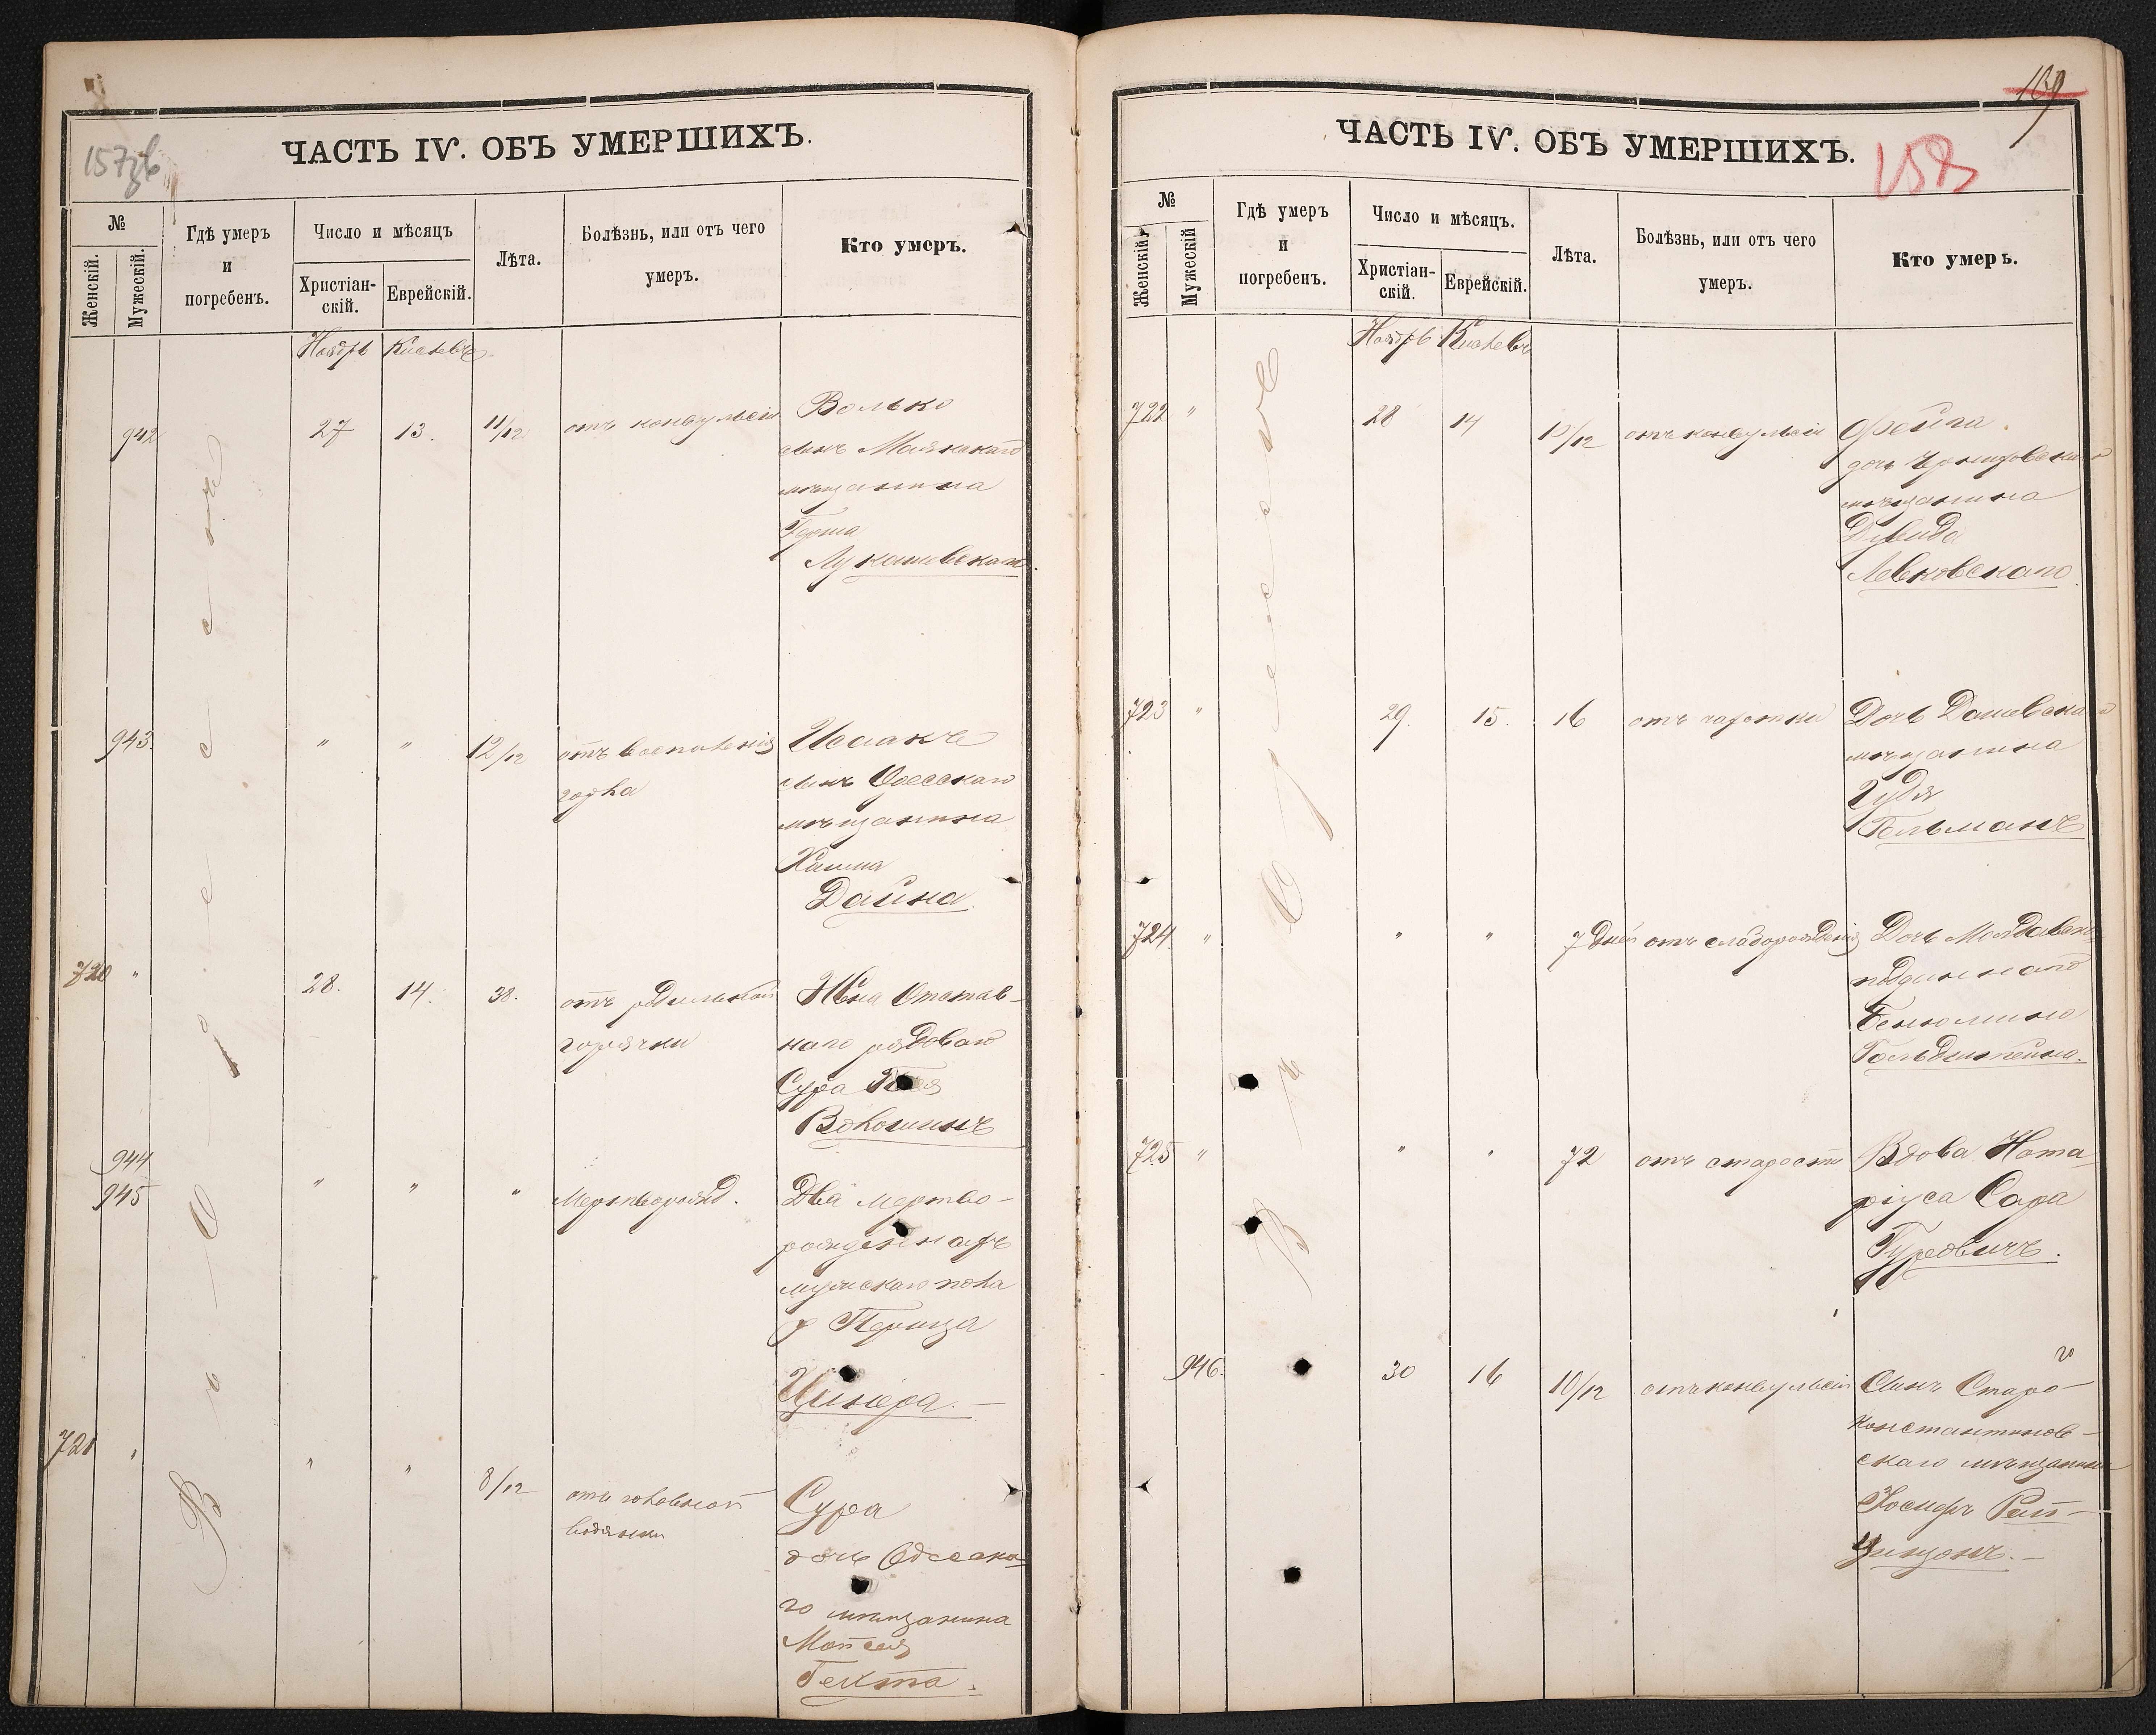 157зв
ЧАСТЬ IV. ОБЪ УМЕРШИХЪ.
№
Женскій.
Мужескій.
Гдѣ умеръ
и
погребенъ.
Число и мѣсяцъ
Христіан-
скій.
Еврейскій.
Лѣта.
Болѣзнь, или отъ чего
умеръ.
Кто умеръ.
Ноябрь Кислевъ
въ Одессѣ
942 27 13. 11/12 отъ конвульсіи Волько
сынъ Маякскаго
мѣщанина
Герша
Лукашевскаго.
943. " " 12/12 отъ воспаленія Исаакъ
горла сынъ Одесскаго
мѣщанина
Хаима
Дайна.
720 " 28. 14. 38. отъ родильной Жена Отстав-
горячки наго рядоваго
Сура
Волошинъ
944
945 " " " Мертворожд. Два мертво-
рожденныхъ
мужскаго пола
у Перица
721 " " " 8/12 отъ головной Сура
водянки дочь Одесска-
го мѣщанина
Мотеля
Гехта.
159
ЧАСТЬ IV. ОБЪ УМЕРШИХЪ.
158
№
Женскій.
Мужескій
Гдѣ умеръ
и
погребенъ.
Число и мѣсяцъ.
Христіан-
скій.
Еврейскій.
Лѣта.
Болѣзнь, или отъ чего
умеръ.
Кто умеръ.
Ноябрь Кислевъ
въ Одессѣ
722 " 28 14 10/12 отъ конвульсіи Фейга
дочь Черниговскаго
мѣщанина
Дувида
Левковскаго.
723 " 29. 15. 16 отъ чахотки Дочь Дашевскаго
мѣщанина
Гольманъ
724. " " " 7 дней отъ слаборожденія Дочь Молдавско-
подданнаго
Бенюмина
Гольдштейна.
725 " " " 72 отъ старости Вдова Нота-
ріуса Сара
Гуровичъ.
946. 30 16 10/12 отъ конвульсіи Сынъ Старо-
константинов-
скаго мѣщанина
Іосифъ